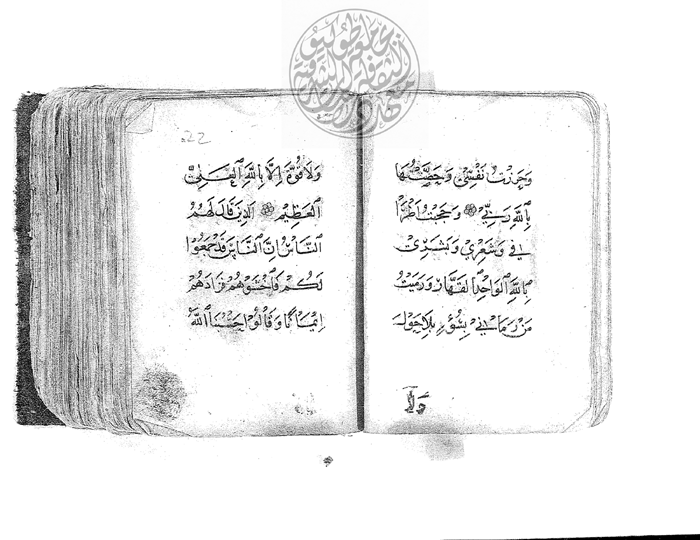 وَحَرَزْتُ نَفْسِيْ وَحَصَّنْتُهَا
بِاللّٰهِ رَبِّيْ وَحَجَبْتُ اَطْرَا
فِي وَشَعْرِيْ وَبَشَرِيْ
بِاللّٰهِ الْوَاحِدِ الْقَهَّارِ وَرَمَيْتُ
مَنْ رَمَانِيْ بِسُوْءٍ بِلَا حَوْلَ
وَلَا
022
وَلَا قُوَّةَ اِلَّا بِاللّٰهِ الْعَلِيِّ
الْعَظِيْمِ اَلَّذِيْنَ قَالَ لَهُمُ
النَّاسُ اِنَّ النَّاسَ قَدْ جَمَعُوْا
لَكُمْ فَاخْشَوْهُمْ فَزَادَهُمْ
اِيْمَانًا وَقَالُوْا حَسْبُنَا اللّٰهُ